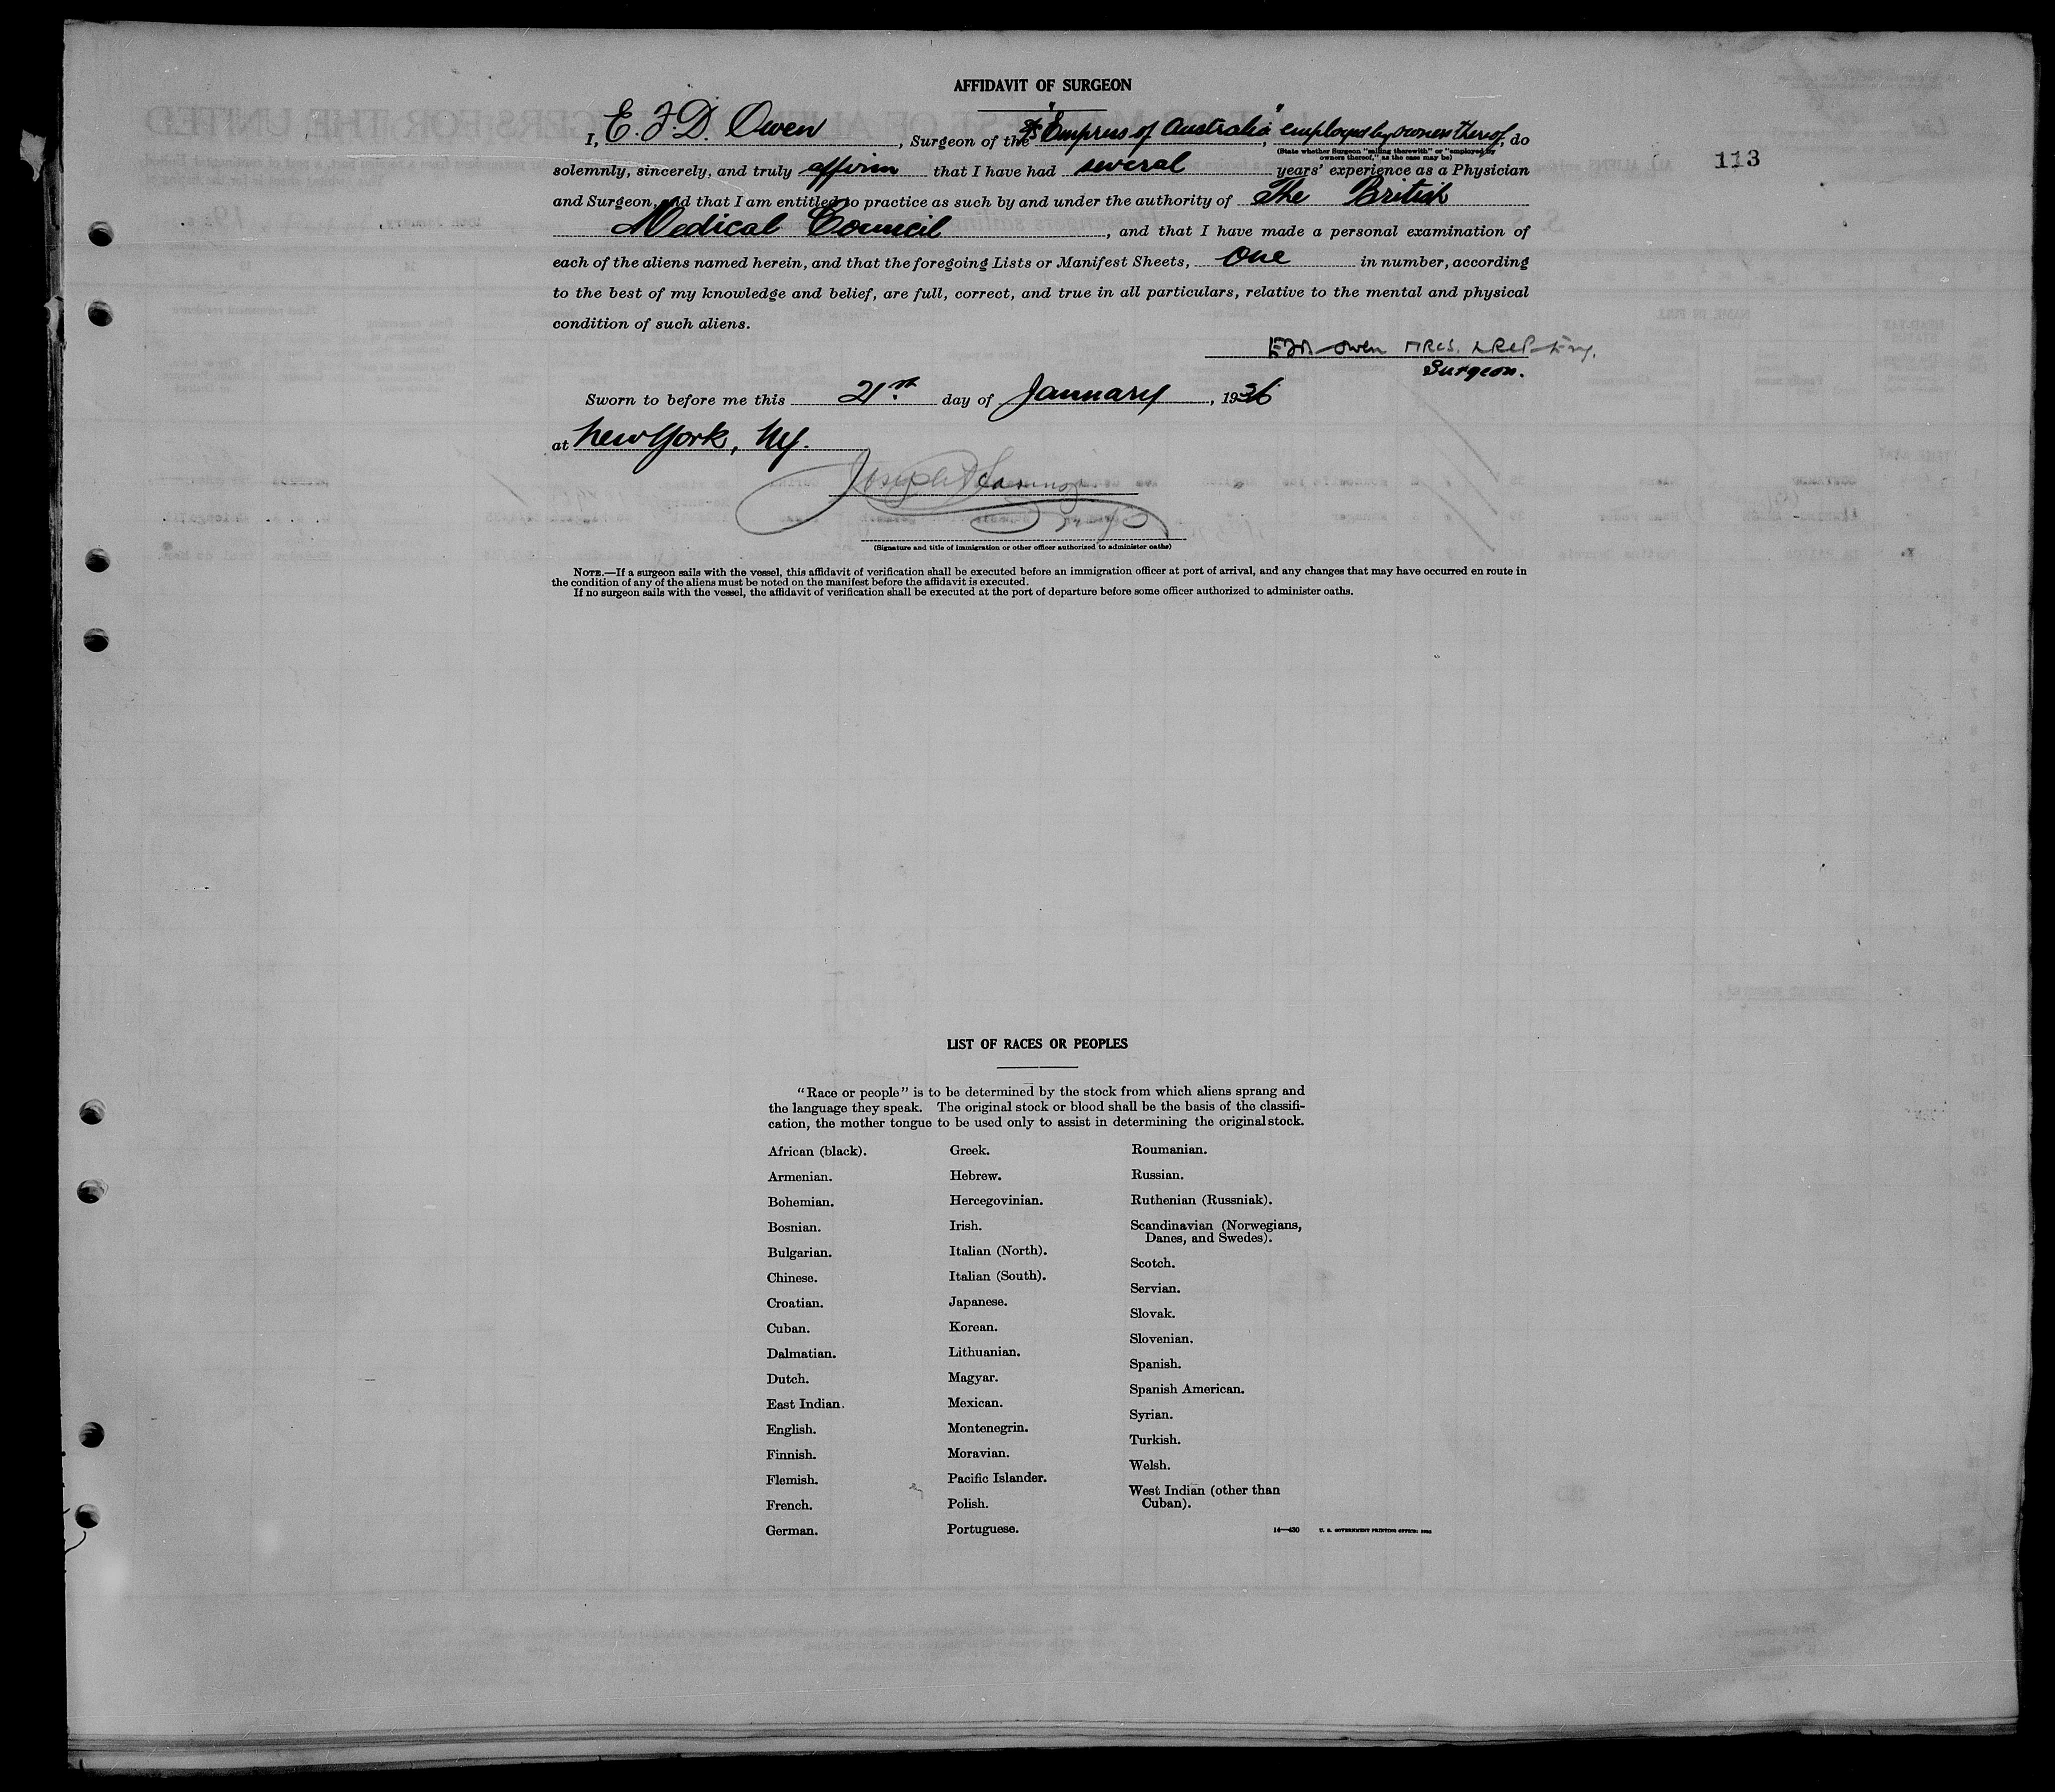 AFFIDAVIT OF SURGEON
I, E. J. D. Owen, Surgeon of the SS "Empress of Australia", employed by owners thereof, do
(State whether Surgeon "sailing therewith" or "employed by
owners thereof," as the case may be)
113
solemnly, sincerely, and truly affirm that I have had several years' experience as a Physician
and Surgeon, and that I am entitled to practice as such by and under the authority of The British
Medical Council, and that I have made a personal examination of
each of the aliens named herein, and that the foregoing Lists or Manifest Sheets, One in number, according
to the best of my knowledge and belief, are full, correct, and true in all particulars, relative to the mental and physical
condition of such aliens.
EJD Owen MRCS. LRCP Eng.
Surgeon.
Sworn to before me this 21st. day of January, 1936
at New York, NY.
Joseph
(Signature and title of immigration or other officer authorized to administer oaths)
NOTE.—If a surgeon sails with the vessel, this affidavit of verification shall be executed before an immigration officer at port of arrival, and any changes that may have occurred en route in
the condition of any of the aliens must be noted on the manifest before the affidavit is executed.
If no surgeon sails with the vessel, the affidavit of verification shall be executed at the port of departure before some officer authorized to administer oaths.
LIST OF RACES OR PEOPLES
"Race or people" is to be determined by the stock from which aliens sprang and
the language they speak. The original stock or blood shall be the basis of the classifi-
cation, the mother tongue to be used only to assist in determining the original stock.
African (black).
Armenian.
Bohemian.
Bosnian.
Bulgarian.
Chinese.
Croatian.
Cuban.
Dalmatian.
Dutch.
East Indian.
English.
Finnish.
Flemish.
French.
German.
Greek.
Hebrew.
Hercegovinian.
Irish.
Italian (North).
Italian (South).
Japanese.
Korean.
Lithuanian.
Magyar.
Mexican.
Montenegrin.
Moravian.
Pacific Islander.
Polish.
Portuguese.
Roumanian.
Russian.
Ruthenian (Russniak).
Scandinavian (Norwegians,
Danes, and Swedes).
Scotch.
Servian.
Slovak.
Slovenian.
Spanish.
Spanish American.
Syrian.
Turkish.
Welsh.
West Indian (other than
Cuban).
14—430 U. S. GOVERNMENT PRINTING OFFICE